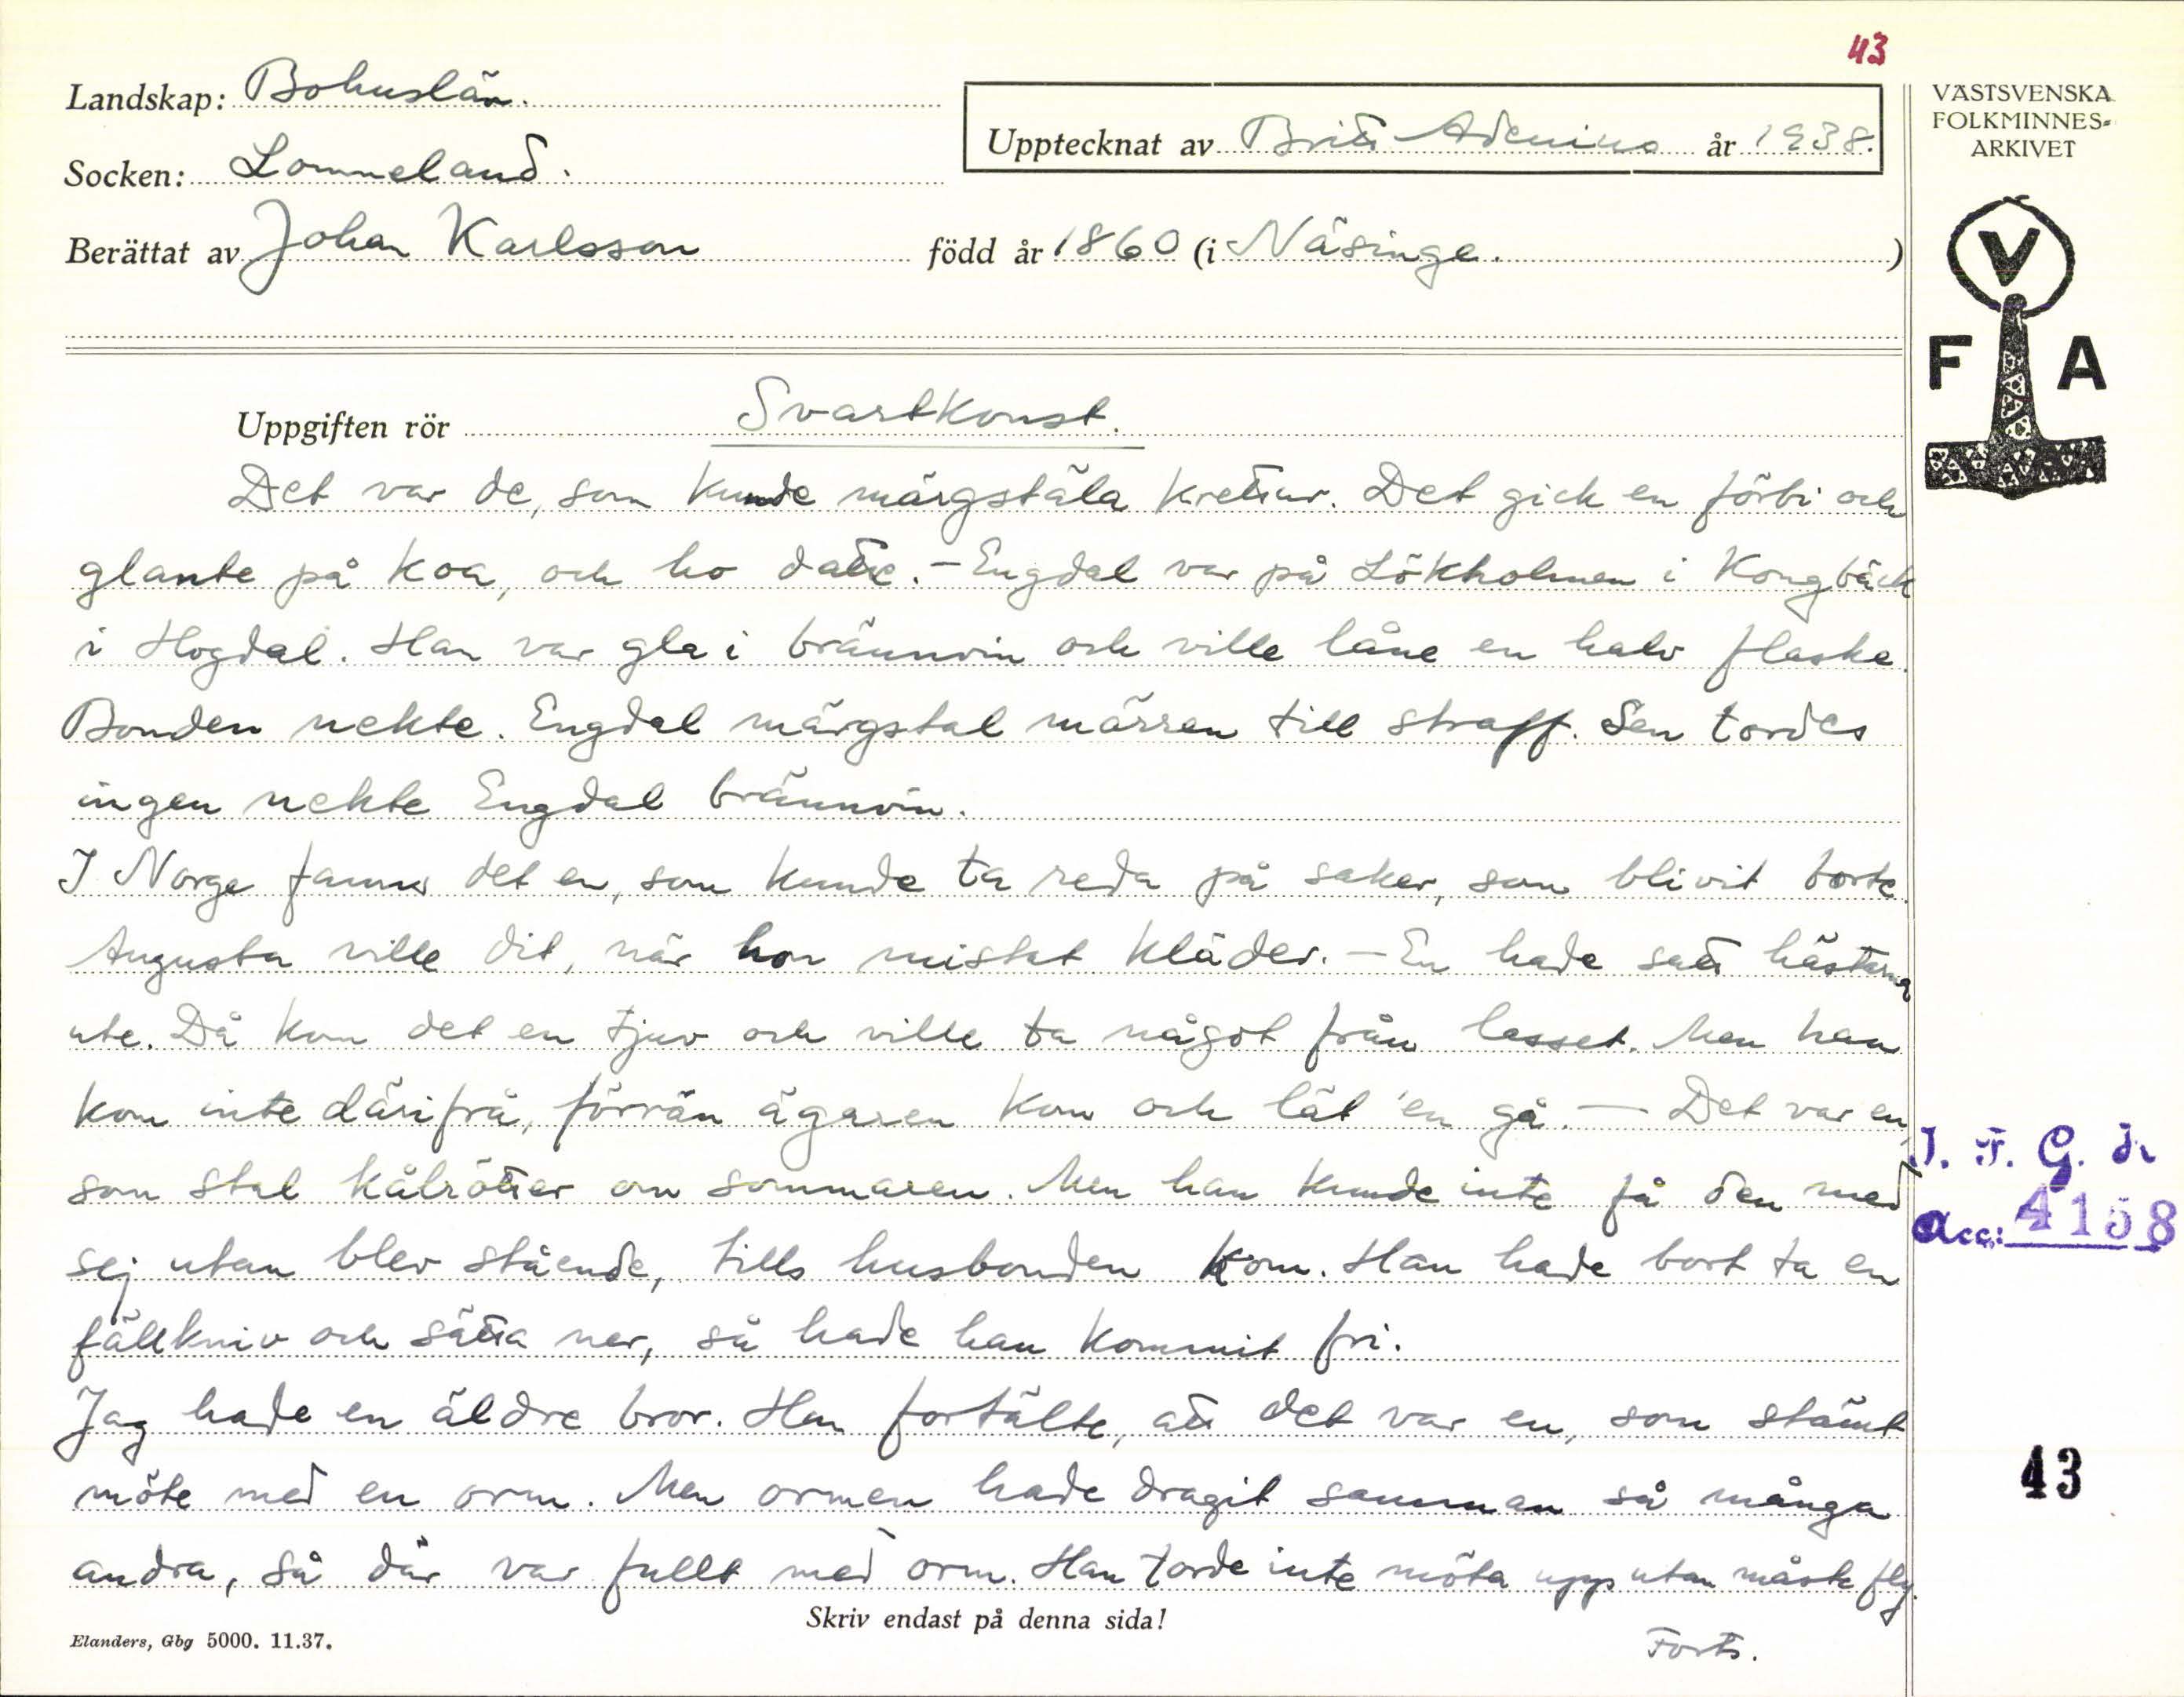 43
Landskap: Bohuslän.
Upptecknat av Britta Adenius år 1938.
VÄSTSVENSKA
FOLKMINNES=
ARKIVET
Socken: Lommeland.
Berättat av Johan Karlsson född år 1860 (i Näsinge. )
V
F A
Uppgiften rör Svartkonst.
Det var de, som kunde märgstäla kretur. Det gick en förbi och
glante på koa, och ho datt. - Engdal var på Lökholmen i Kongbäck
i Hogdal. Han var gla i brännvin och ville låne en halv flaske.
Bonden nekte. Engdal märgstal märren till straff. Sen tordes
ingen nekte Engdal brännvin.
I Norge fanns det en, som kunde ta reda på saker, som blivit borte.
Augusta ville dit, när hon mistat kläder. - En hade satt hästarna
ute. Då kom det en tjuv och ville ta något från lasset. Men han
kom inte därifrå, förrän ägaren kom och lät 'en gå. - Det var en,
som stal kålrötter om sommaren. Men han kunde inte få den med
sej utan blev stående, tills husbonden kom. Han hade bort ta en
fällkniv och sätta ner, så hade han kommit fri.
Jag hade en äldre bror. Han fortälte, att det var en, som stämt
möte med en orm. Men ormen hade dragit samman så många
andra, så där var fullt med orm. Han torde inte möta upp utan måste fly.
I. F. G. H
Acc: 4158
43
Skriv endast på denna sida!
Elanders, Gbg 5000. 11.37.
Forts.